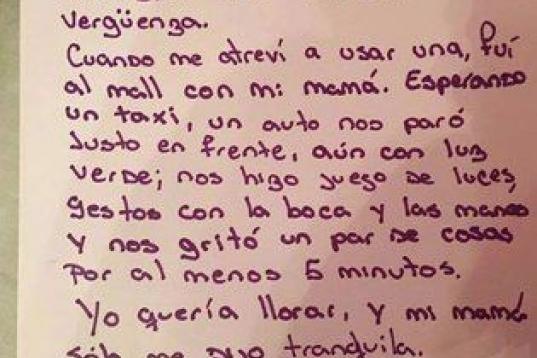 vergüenza.
Cuando me atreví a usar una, fuí
al mall con mi mamá. Esperando
un taxi, un auto nos paró
Justo en frente, aún con luz
verde; nos hizo juego de luces,
gestos con la boca y las manos
y nos gritó un par de cosas
Por al menos 5 minutos.
Yo quería llorar, y mi mamá
sólo me dijo tranquila.